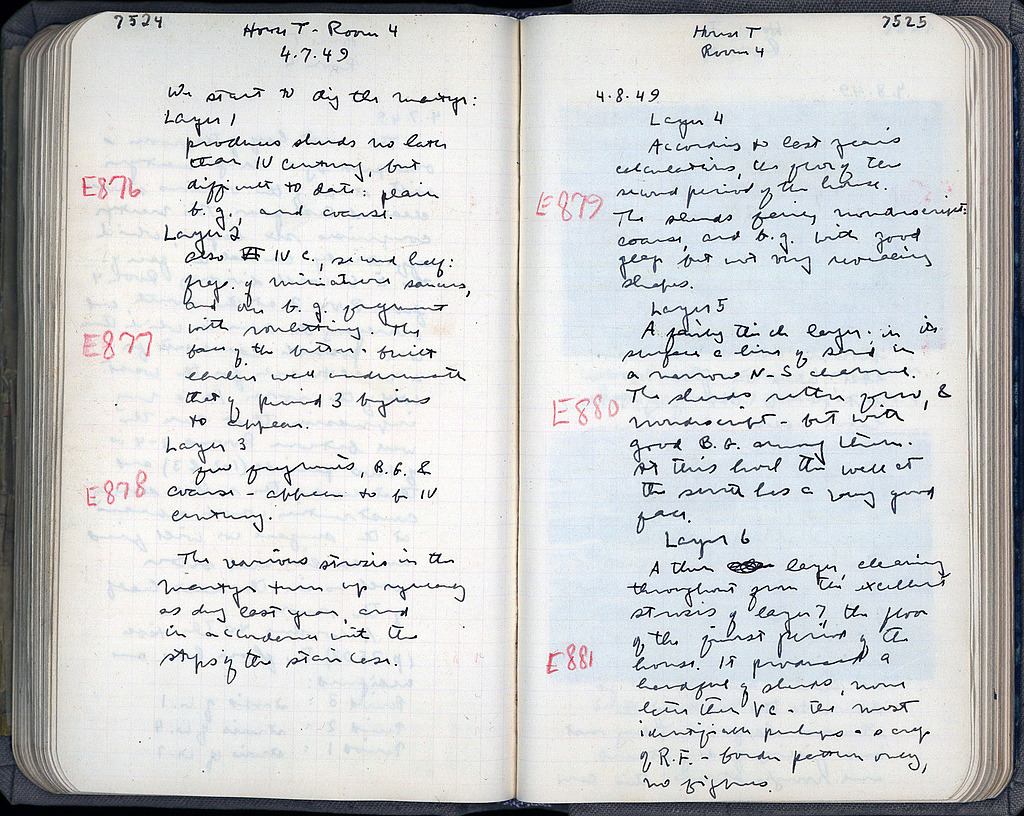 7524
House T - Room 4
4.7.49
We start to dig the martyr:
Layer 1
produces sherds no later
than IV century, but
E876
difficult to date: plain
b.g. and coarse.
Layer 2
also IV c., second half:
frgs. of miniature saucers,
and one b.g. fragment
with rouletting. The
E877
face of the better-built
earlier wall underneath
that of period 3 begins
to appear.
Layer 3
few fragments, B.G. &
E878
coarse - appear to be IV
century.
The various strosis in the
martyr turn up
as dug last year, and
in accordance with the
steps of the staircase.
7525
House T
Room 4
4.8.49
Layer 4
According to last year's
calculations, the floor of the
second period of the house.
E879
The sherds fairly nondescript:
coarse, and b.g. with good
glaze but not very revealing
shapes.
Layer 5
A fairly thick layer; in its
surface a line of sand in
a narrow N-S channel.
The sherds rather few, &
E880
nondescript - but with
good B.G. among them.
At this level the wall at
the south has a very good
face.
Layer 6
A thin layer, clearing
throughout from the excellent
strosis of layer 7, the floor
of the first period of the
E881
house. It produced a
handful of sherds, none
later than V c - the most
identifiable perhaps a scrap
of R.F. - border pattern only,
no figures.